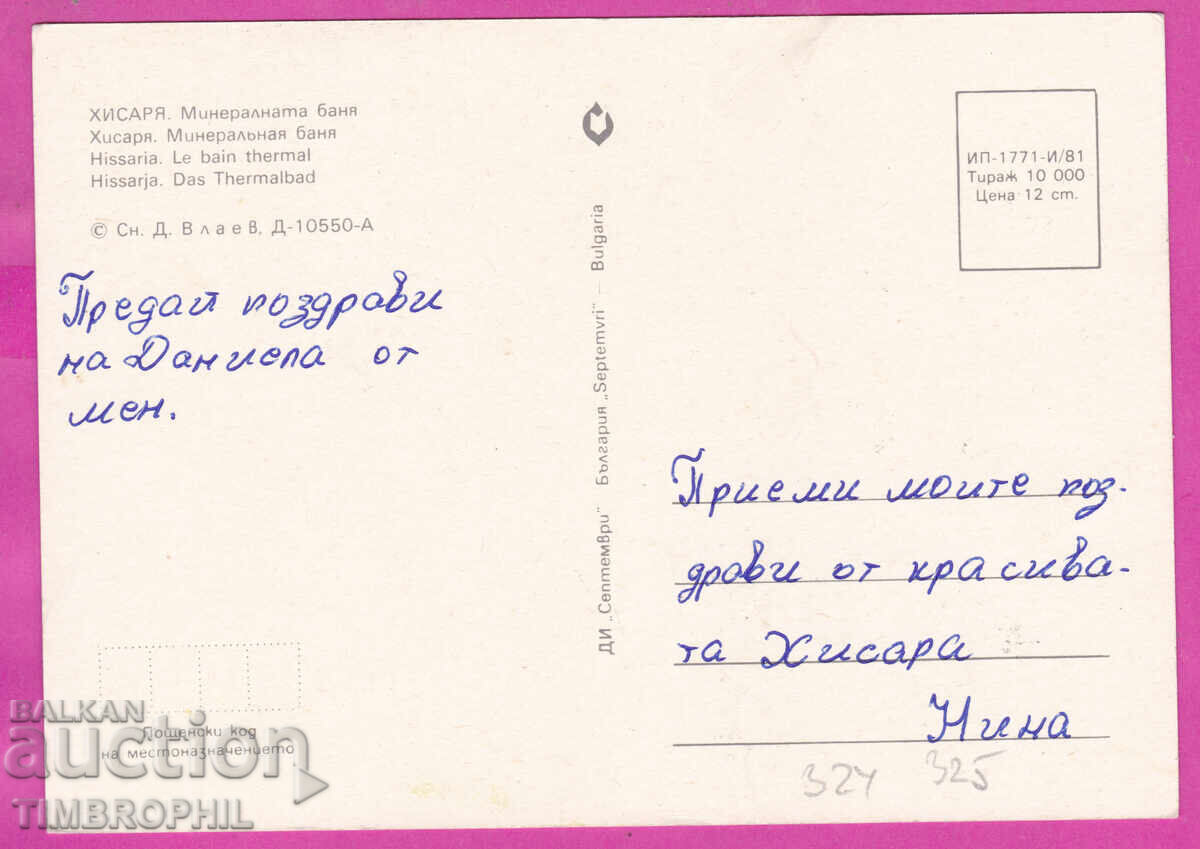 ХИСАРЯ. Минералната баня
Хисаря. Минеральная баня
Hissaria. Le bain thermal
Hissarja. Das Thermalbad
© Сн. Д. Влаев, Д-10550-А
Предай поздрави
на Даниела от
мен.
Пощенски код
на местоназначението
ДИ „Септември" България „Septemvri" – Bulgaria
ИП-1771-И/81
Тираж 10 000
Цена 12 ст.
Приеми моите поз-
драви от красива-
та Хисара
Нина
324 325
BALKAN
auction
TIMBROPHIL